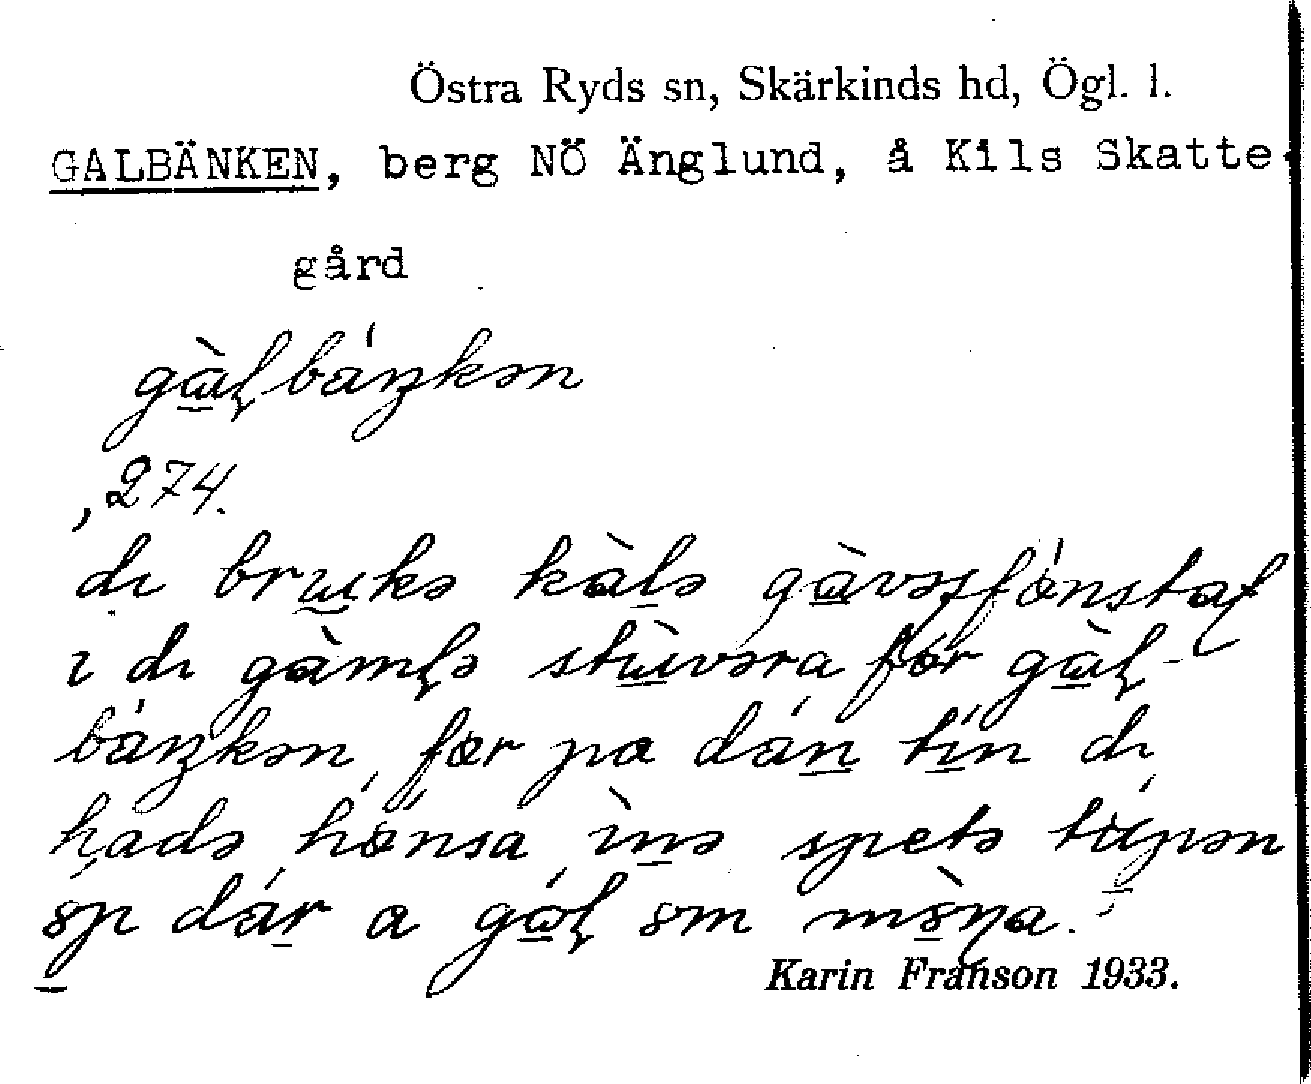 Östra Ryds sn, Skärkinds hd, Ögl. l.
GALBÄNKEN, berg NÖ Änglund, å Kils Skatte-
gård
gɑ̀ḷbáŋkən
,274.
dı brukə kàlə gɑ̀vəsfónstaḷ
ı dı gàmḷə stùvəra før gɑ̀ḷ-
báŋkən, før pa dán tín dı
hadə hónsa ìnə spetə túpən
əp dár a gɑ́ḷ əm mə̀ŋa.
Karin Franson 1933.